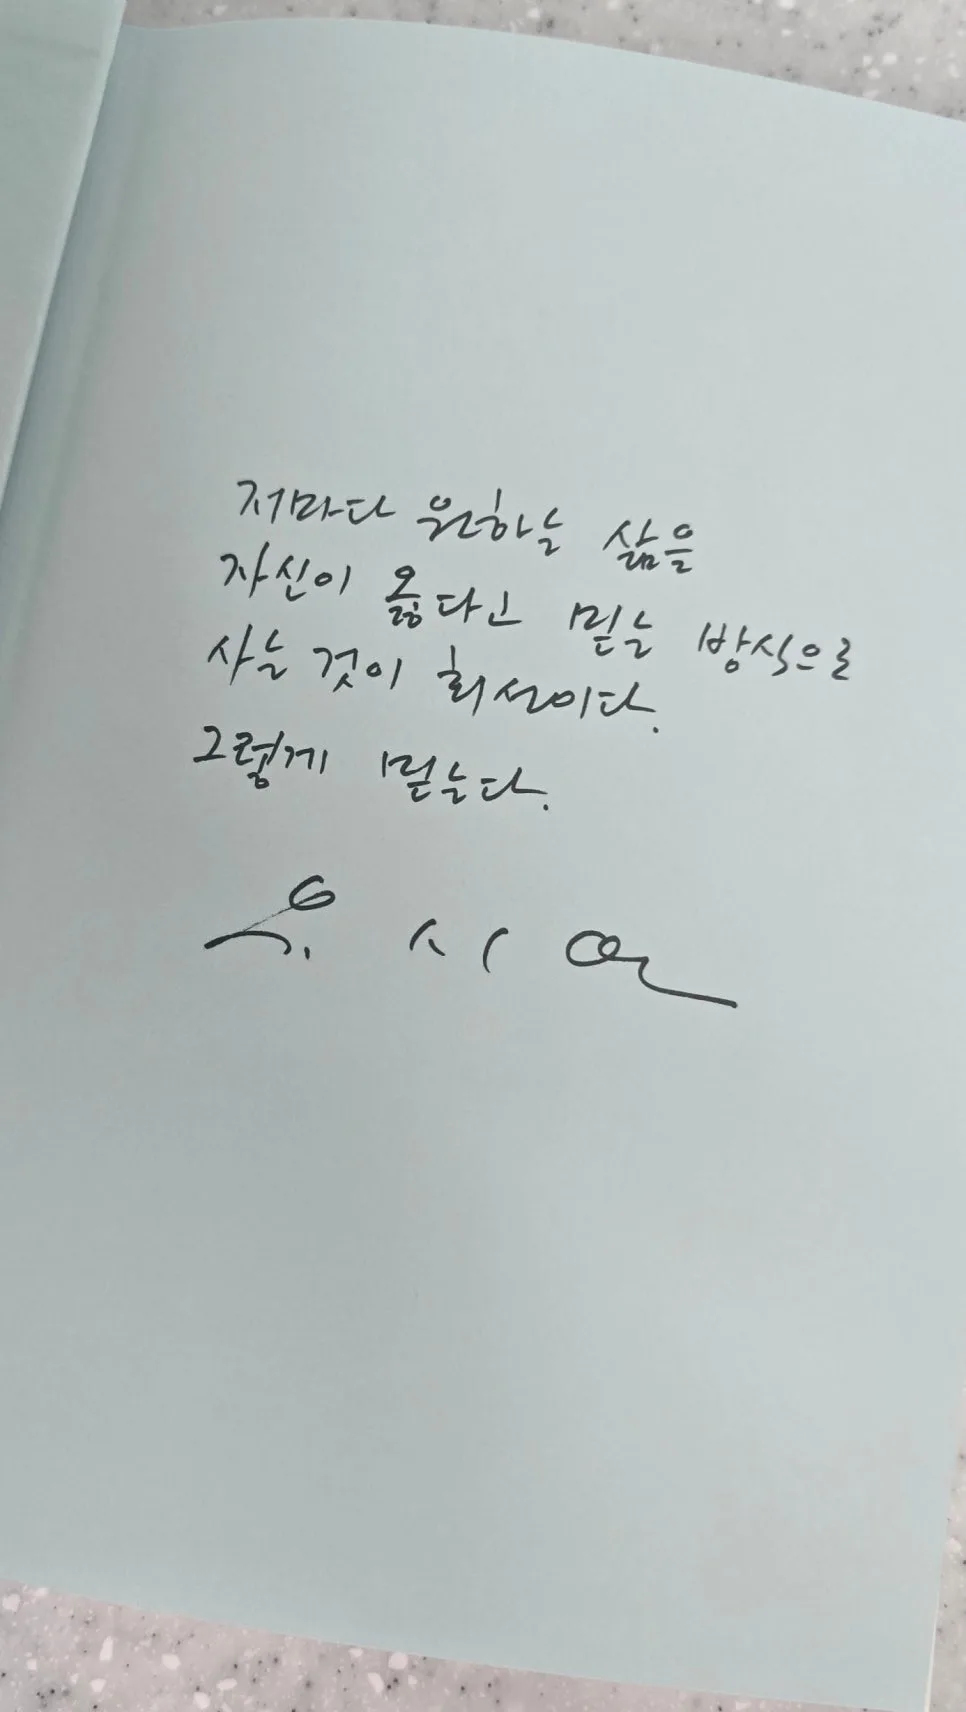 저마다 원하는 삶을
자신이 옳다고 믿는 방식으로
사는 것이 최선이다.
그렇게 믿는다.
유시민